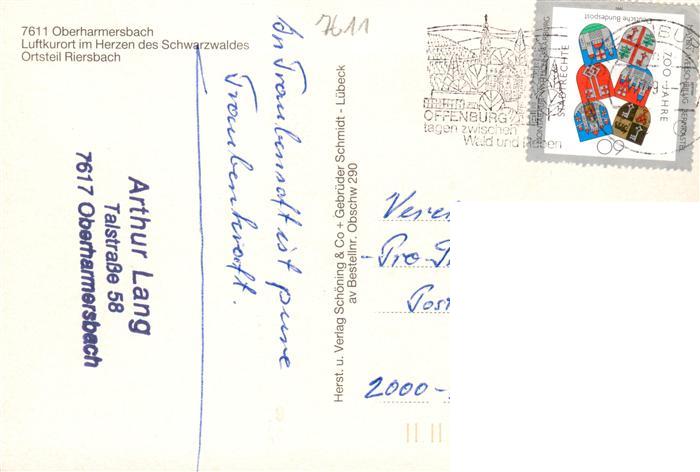 7611 Oberharmersbach
Luftkurort im Herzen des Schwarzwaldes
Ortsteil Riersbach
7611
An Traubensaft ist pure
Traubenkraft.
Arthur Lang
Talstraße 58
7617 Oberharmersbach
Herst. u. Verlag Schöning & Co + Gebrüder Schmidt - Lübeck
av Bestellnr. Obschw 290
OFFENBURG
tagen zwischen
Wald und Reben
Deutsche Bundespost
700 JAHRE
STADTRECHTE
60
Verei
-Pro-
Post
2000-